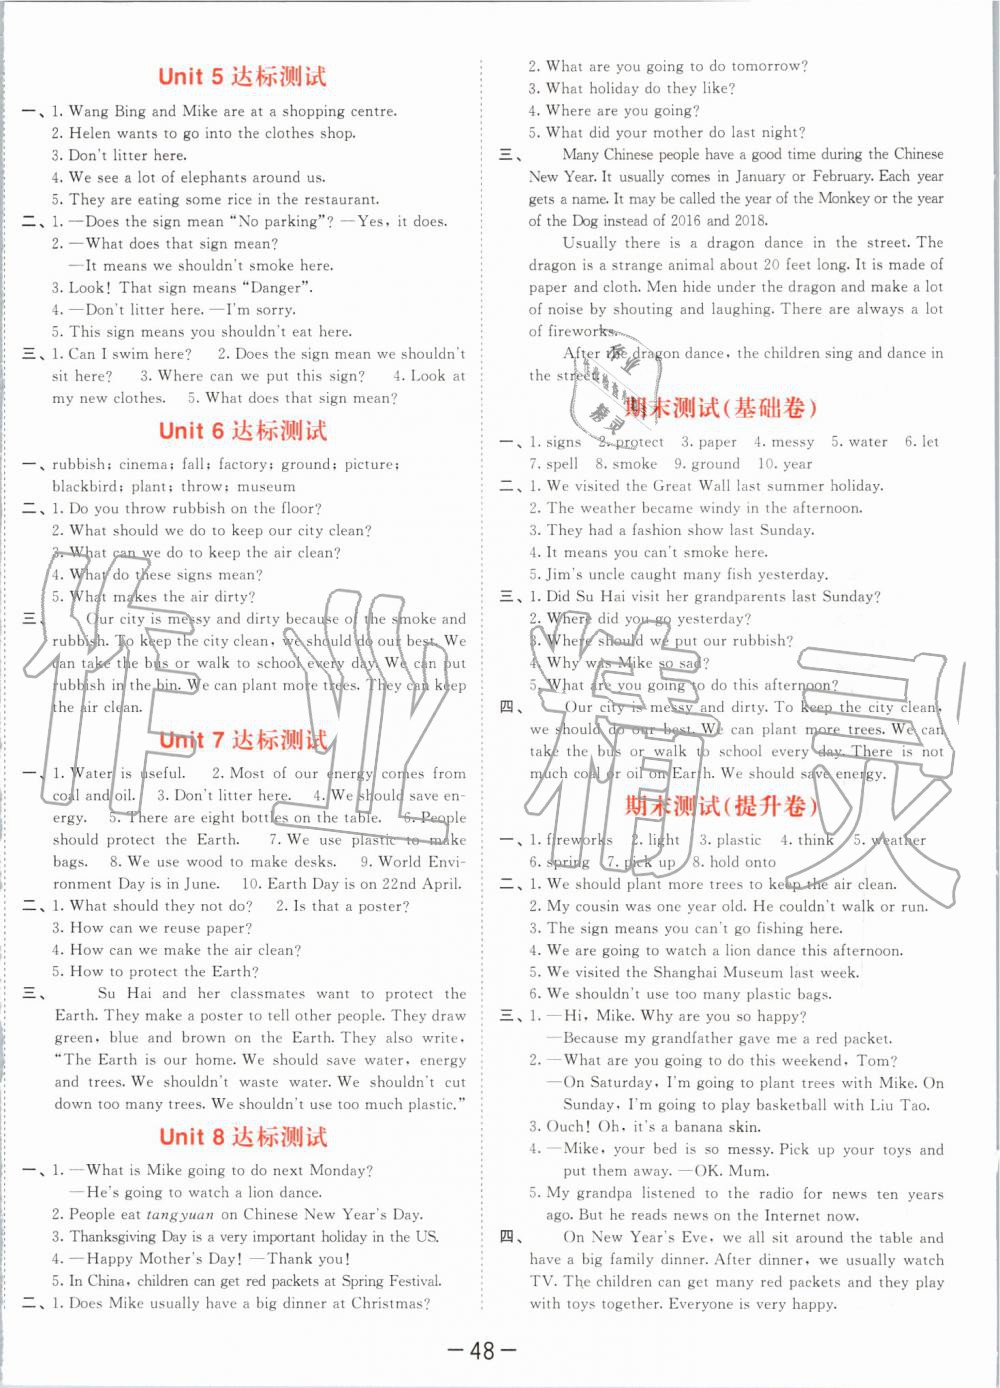 Unit 5 达标测试
一、1. Wang Bing and Mike are at a shopping centre.
2. Helen wants to go into the clothes shop.
3. Don't litter here.
4. We see a lot of elephants around us.
5. They are eating some rice in the restaurant.
二、1. —Does the sign mean “No parking”? —Yes, it does.
2. —What does that sign mean?
—It means we shouldn't smoke here.
3. Look! That sign means “Danger”.
4. —Don't litter here. —I'm sorry.
5. This sign means you shouldn't eat here.
三、1. Can I swim here? 2. Does the sign mean we shouldn't
sit here? 3. Where can we put this sign? 4. Look at
my new clothes. 5. What does that sign mean?
Unit 6 达标测试
一、rubbish; cinema; fall; factory; ground; picture;
blackbird; plant; throw; museum
二、1. Do you throw rubbish on the floor?
2. What should we do to keep our city clean?
3. What can we do to keep the air clean?
4. What do these signs mean?
5. What makes the air dirty?
三、Our city is messy and dirty because of the smoke and
rubbish. To keep the city clean, we should do our best. We
can take the bus or walk to school every day. We can put
rubbish in the bin. We can plant more trees. They can keep
the air clean.
Unit 7 达标测试
一、1. Water is useful. 2. Most of our energy comes from
coal and oil. 3. Don't litter here. 4. We should save en-
ergy. 5. There are eight bottles on the table. 6. People
should protect the Earth. 7. We use plastic to make
bags. 8. We use wood to make desks. 9. World Envi-
ronment Day is in June. 10. Earth Day is on 22nd April.
二、1. What should they not do? 2. Is that a poster?
3. How can we reuse paper?
4. How can we make the air clean?
5. How to protect the Earth?
三、Su Hai and her classmates want to protect the
Earth. They make a poster to tell other people. They draw
green, blue and brown on the Earth. They also write,
“The Earth is our home. We should save water, energy
and trees. We shouldn't waste water. We shouldn't cut
down too many trees. We shouldn't use too much plastic.”
Unit 8 达标测试
一、1. —What is Mike going to do next Monday?
—He's going to watch a lion dance.
2. People eat tangyuan on Chinese New Year's Day.
3. Thanksgiving Day is a very important holiday in the US.
4. —Happy Mother's Day! —Thank you!
5. In China, children can get red packets at Spring Festival.
二、1. Does Mike usually have a big dinner at Christmas?
2. What are you going to do tomorrow?
3. What holiday do they like?
4. Where are you going?
5. What did your mother do last night?
三、Many Chinese people have a good time during the Chinese
New Year. It usually comes in January or February. Each year
gets a name. It may be called the year of the Monkey or the year
of the Dog instead of 2016 and 2018.
Usually there is a dragon dance in the street. The
dragon is a strange animal about 20 feet long. It is made of
paper and cloth. Men hide under the dragon and make a lot
of noise by shouting and laughing. There are always a lot
of fireworks.
After the dragon dance, the children sing and dance in
the street.
期末测试(基础卷)
一、1. signs 2. protect 3. paper 4. messy 5. water 6. let
7. spell 8. smoke 9. ground 10. year
二、1. We visited the Great Wall last summer holiday.
2. The weather became windy in the afternoon.
3. They had a fashion show last Sunday.
4. It means you can't smoke here.
5. Jim's uncle caught many fish yesterday.
三、1. Did Su Hai visit her grandparents last Sunday?
2. Where did you go yesterday?
3. Where should we put our rubbish?
4. Why was Mike so sad?
5. What are you going to do this afternoon?
四、Our city is messy and dirty. To keep the city clean,
we should do our best. We can plant more trees. We can
take the bus or walk to school every day. There is not
much coal or oil on Earth. We should save energy.
期末测试(提升卷)
一、1. fireworks 2. light 3. plastic 4. think 5. weather
6. spring 7. pick up 8. hold onto
二、1. We should plant more trees to keep the air clean.
2. My cousin was one year old. He couldn't walk or run.
3. The sign means you can't go fishing here.
4. We are going to watch a lion dance this afternoon.
5. We visited the Shanghai Museum last week.
6. We shouldn't use too many plastic bags.
三、1. —Hi, Mike. Why are you so happy?
—Because my grandfather gave me a red packet.
2. —What are you going to do this weekend, Tom?
—On Saturday, I'm going to plant trees with Mike. On
Sunday, I'm going to play basketball with Liu Tao.
3. Ouch! Oh, it's a banana skin.
4. —Mike, your bed is so messy. Pick up your toys and
put them away. —OK. Mum.
5. My grandpa listened to the radio for news ten years
ago. But he reads news on the Internet now.
四、On New Year's Eve, we all sit around the table and
have a big family dinner. After dinner, we usually watch
TV. The children can get many red packets and they play
with toys together. Everyone is very happy.
— 48 —
作业精灵